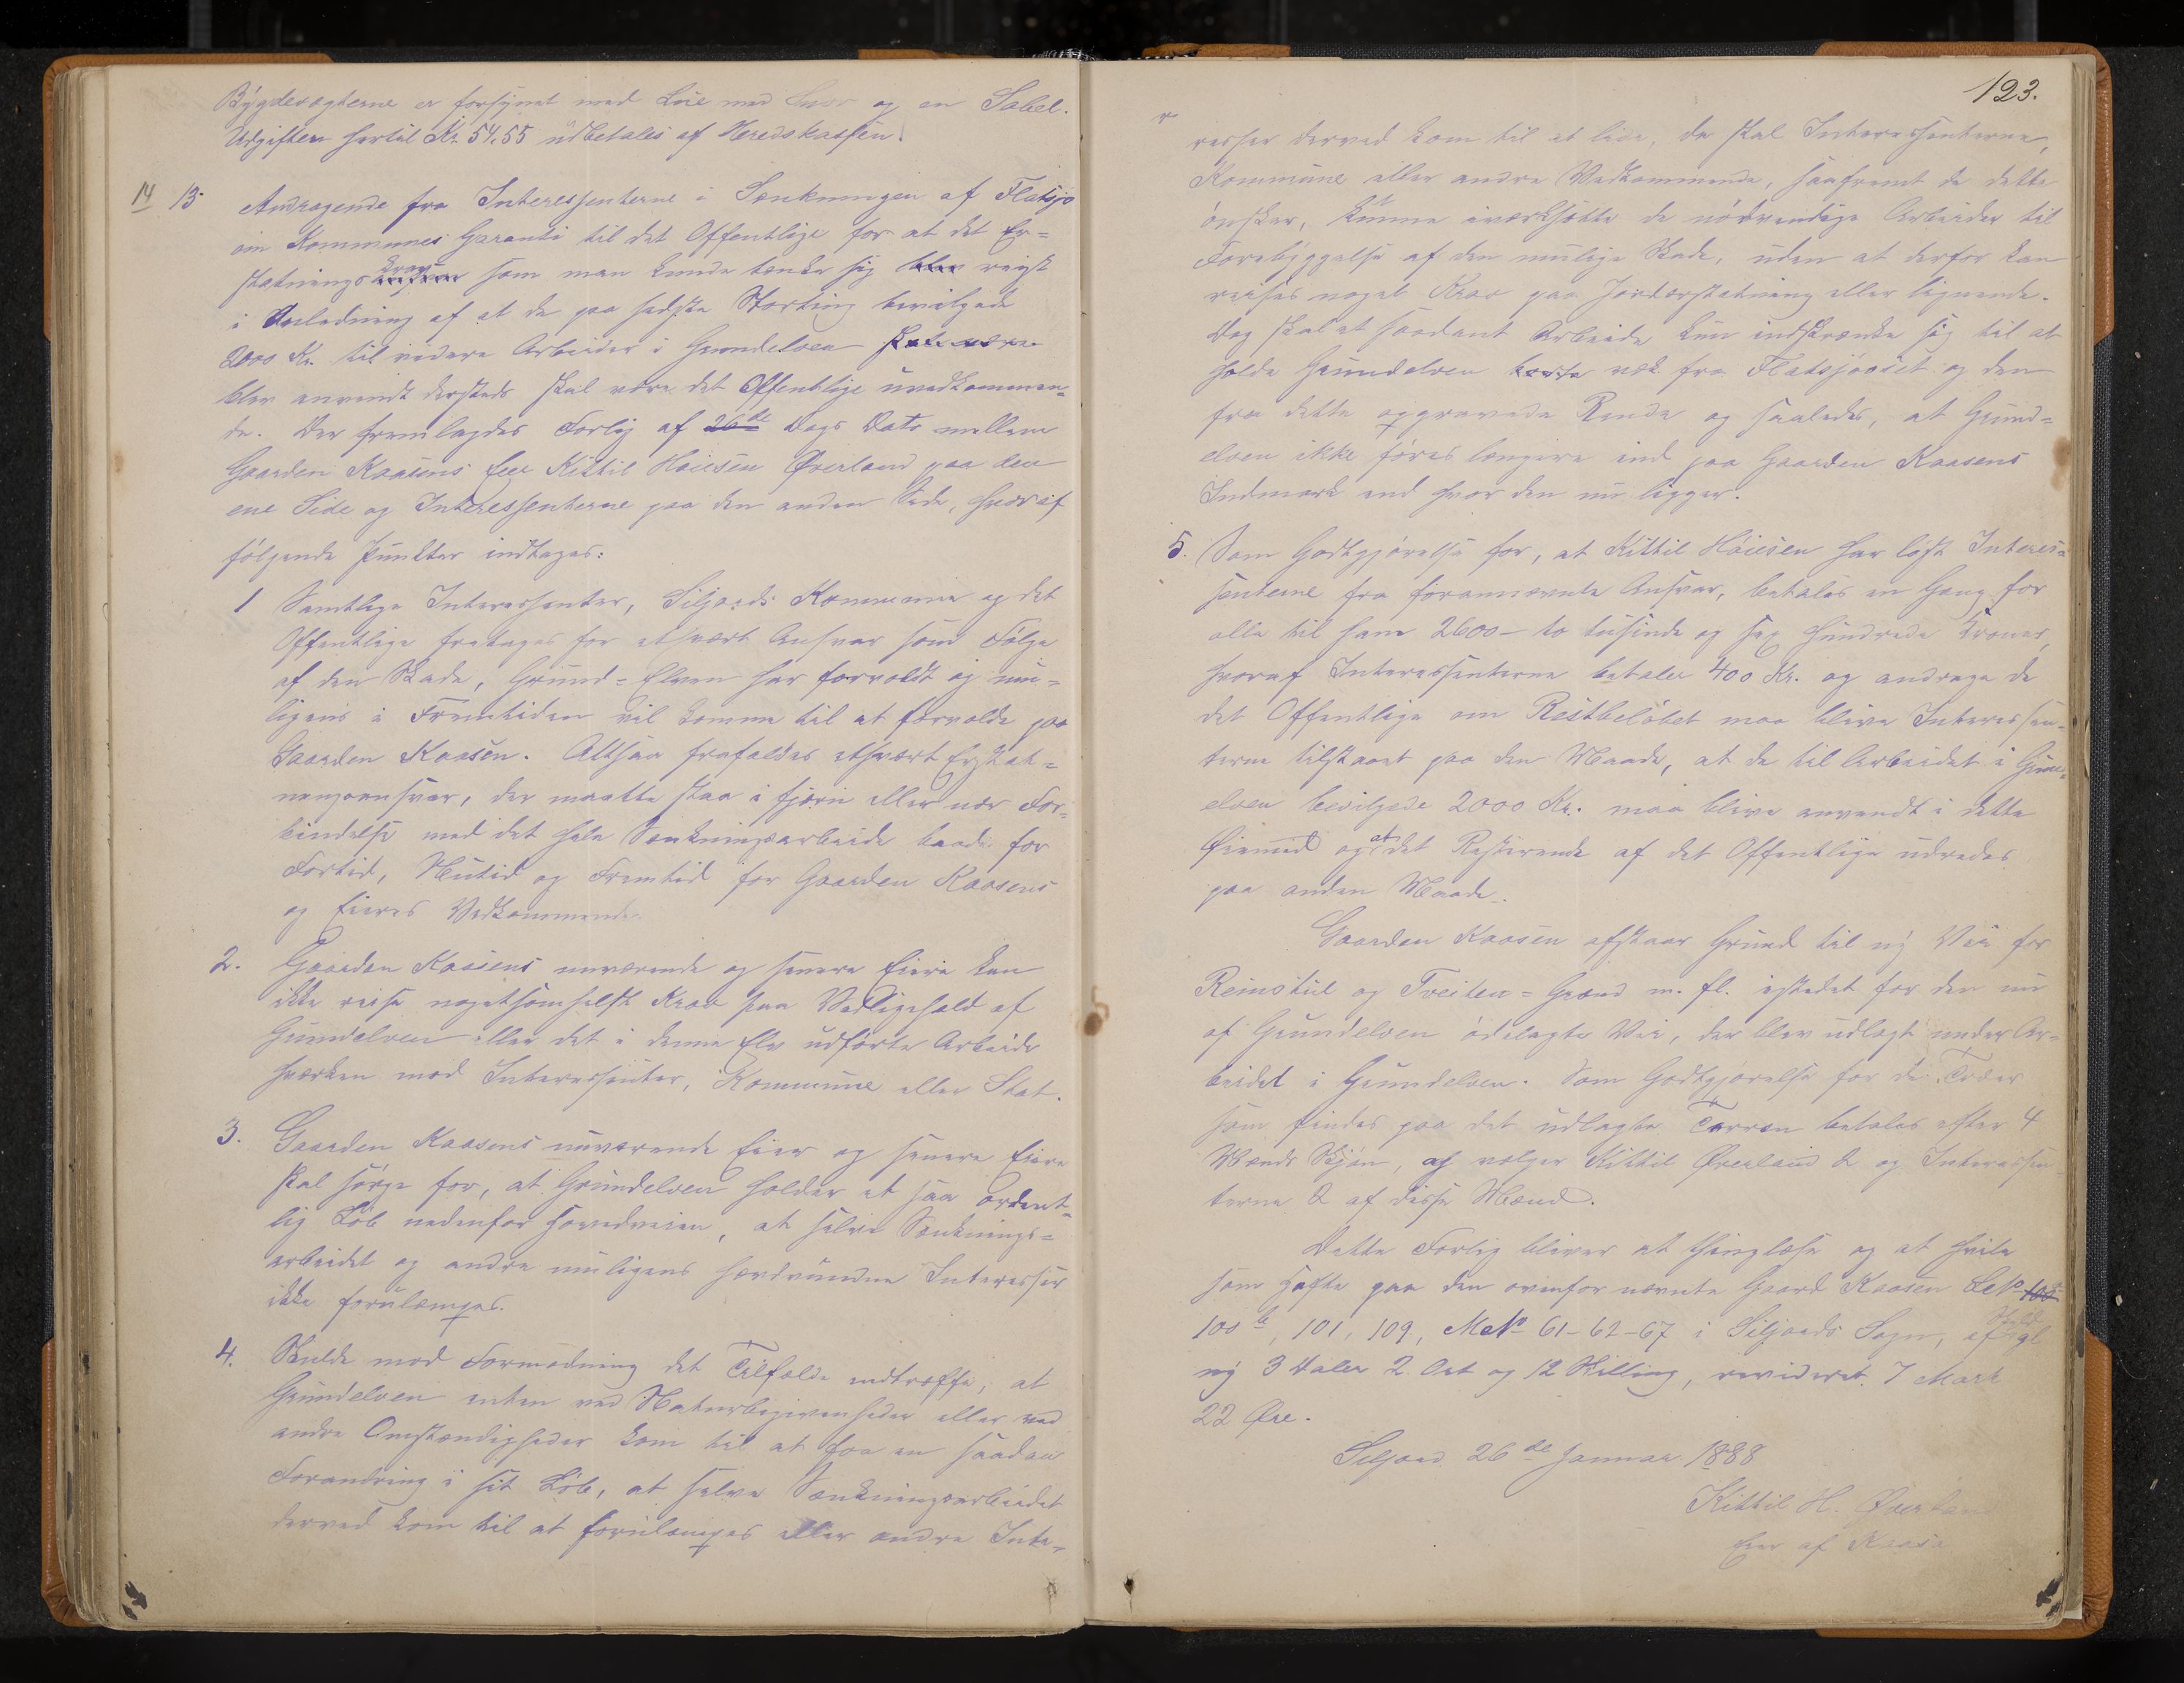 Bygdevægterne er forsynet med Lue med Snor og en Sabel.
Udgiften hertil Kr. 54.55 udbetales af Heredskassen.
14 13 Andragende fra Interessenterne i Sænkningen af Flatsjø
om Kommunes Garanti til det Offentlige for at det Er=
statningsansvar krav som man kunde tænke sig blev reist
i Anledning af at de paa sidste Storting bevilgede
2000 Kr. til videre Arbeider i Grundelven skal være
blev anvendt dersteds skal være det Offentlige uvedkommen=
de. Der fremlagdes Forlig af 26de Dags Dato mellem
Gaarden Kaasens Eier Kittil Høiesen Øverland paa den
ene Side og Interessenterne paa den anden Side, hvoraf
følgende Punkter indtages:
1 Samtlige Interessenter, Siljords Kommune og det
Offentlige fratages for ethvert Ansvar som Følge
af den Skade, Grund=Elven har forvoldt og mu=
ligens i Fremtiden vil komme til at forvolde paa
Gaarden Kaasen. Altsaa frafaldes ethvert Erstat=
ningsansvar, der maatte staa i fjern eller nær For=
bindelse med det hele Sænkningsarbeide baade for
Fortid, Nutid og Fremtid for Gaarden Kaasens
og Eieres Vedkommende.
2. Gaarden Kaasens nuværende og senere Eiere kan
ikke reise nogetsomhelst Krav paa Vedligehold af
Grundelven eller det i denne Elv udførte Arbeide
hverken mod Interessenter, Kommune eller Stat.
3. Gaarden Kaasens nuværende Eier og senere Eiere
skal sørge for, at Grundelven holder et saa ordent=
lig Løb nedenfor Hovedveien, at selve Sænknings=
arbeidet og andre muligens hævdvundne Interesser
ikke forulæmpes.
4. Skulde mod Formodning det Tilfælde indtræffe, at
Grundelven enten ved Naturbegivenheder eller ved
andre Omstændigheder kom til at faa en saadan
Forandring i sit Løb, at selve Sænkningsarbeidet
derved kom til at forulæmpes eller andre Inte=
123.
resser derved kom til at lide, da skal Interessenterne,
Kommune eller andre Vedkommende, saafremt de dette
ønsker, kunne iværksætte de nødvendige Arbeider til
Forebyggelse af den mulige Skade, uden at derfor kan
reises noget Krav paa Jorderstatning eller lignende.
Dog skal et saadant Arbeide kun indskrænke sig til at
holde Grundelven borte væk fra Flatsjøoset og den
fra dette opgravede Rende og saaledes, at Grund=
elven ikke føres længere ind paa Gaarden Kaasens
Indmark end hvor den nu ligger.
5. Som Godtgjørelse for, at Kittil Høiesen har løst Interes=
senterne fra forannævnte Ansvar, betales en Gang for
alle til ham 2600 – to tusinde og sex hundrede Kroner,
hvoraf Interessenterne betaler 400 Kr. og andrage de
det Offentlige om Restbeløbet maa blive Interessen=
terne tilstaaet paa den Maade, at de til Arbeidet i Grund=
elven bevilgede 2000 Kr. maa blive anvendt i dette
Øiemed og at det Resterende af det Offentlige udredes
paa anden Maade.
Gaarden Kaasen afstaar Grund til ny Vei for
Reinstul og Treiten=Grænd m. fl. istedet for den nu
af Grundelven ødelagte Vei, der blev udlagt under Ar=
beidet i Grundelven. Som Godtgjørelse for de Træer
som findes paa det udlagte Terræn betales efter 4
Mænds Skjøn, og vælger Kittil Øverland 2 og Interessen
terne 2 af disse Mænd.
Dette Forlig bliver at thinglæse og at hvile
som Hæfte paa den ovenfor nævnte Gaard Kaasen LeN 100
100 b, 101, 109, MeN 61-62-67 i Siljords Sogn, af Skyld gl
ny 3 Daler 2 Ort og 12 Skilling, revideret 7 Mark
22 Øre.
Seljord 26de Januar 1888
Kittil H. Øverland
Eier af Kaasa